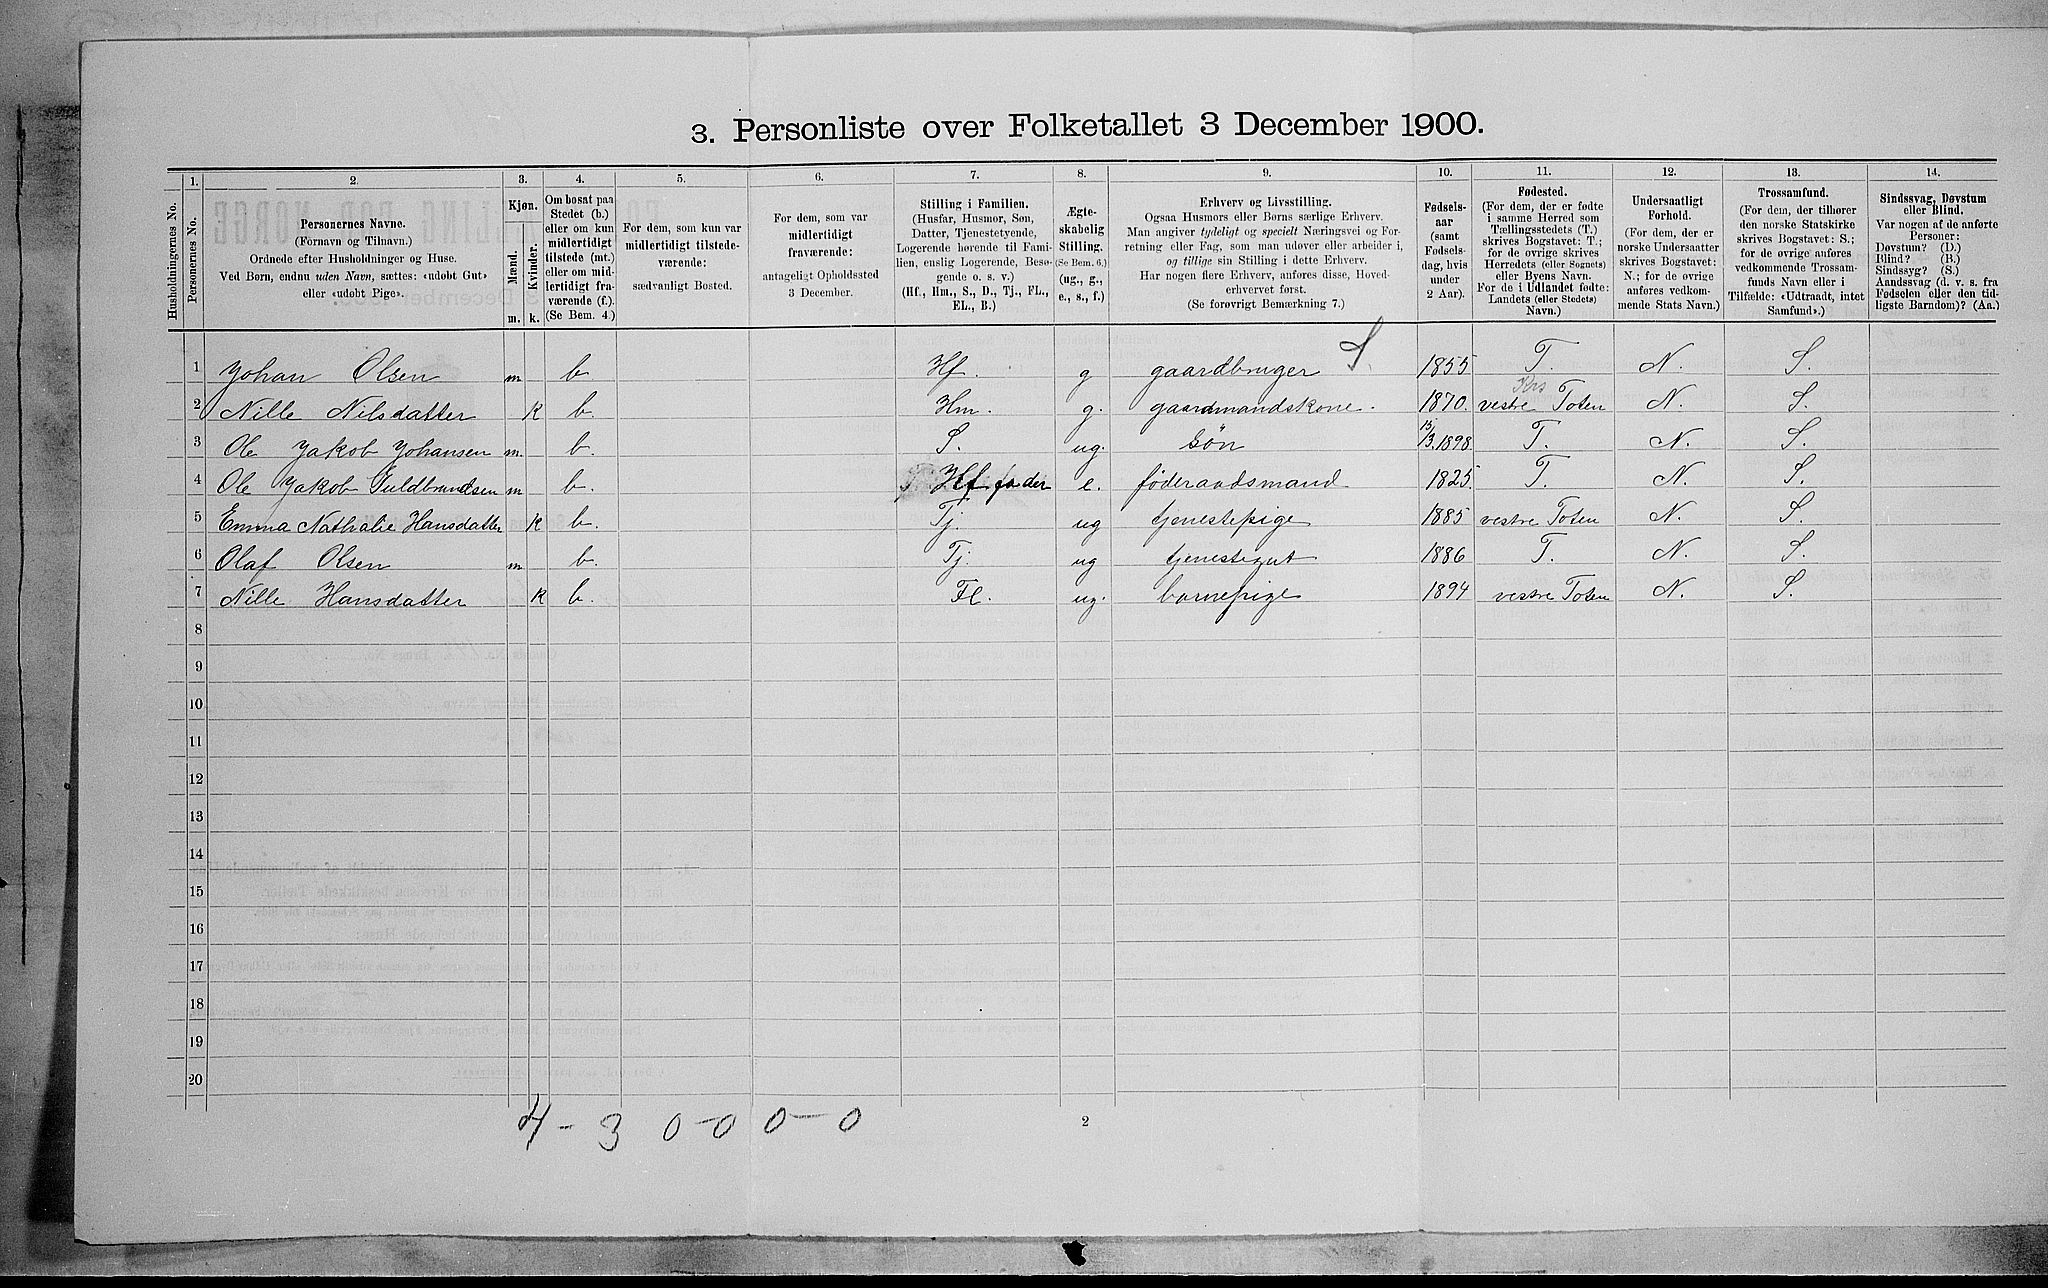 3. Personliste over Folketallet 3 December 1900.
1. 2. 3. 4. 5. 6. 7. 8. 9. 10. 11. 12. 13. 14.
Husholdningernes No.
Personernes No.
Personernes Navne.
(Fornavn og Tilnavn.)
Ordnede efter Husholdninger og Huse.
Ved Børn, endnu uden Navn, sættes: «udøbt Gut»
eller «udøbt Pige».
Kjøn.
Mænd.
Kvinder.
m. k.
Om bosat paa
Stedet (b.)
eller om kun
midlertidigt
tilstede (mt.)
eller om mid-
lertidigt fra-
værende (f.)
(Se Bem. 4.)
For dem, som kun var
midlertidigt tilstede-
værende:
sædvanligt Bosted.
For dem, som var
midlertidigt
fraværende:
antageligt Opholdssted
3 December.
Stilling i Familien.
(Husfar, Husmor, Søn,
Datter, Tjenestetyende,
Logerende hørende til Fami-
lien, enslig Logerende, Besø-
gende o. s. v.)
(Hf., Hm., S., D., Tj., FL.,
EL., B.)
Ægte-
skabelig
Stilling.
(Se Bem. 6.)
(ug., g.,
e., s., f.)
Erhverv og Livsstilling.
Ogsaa Husmors eller Børns særlige Erhverv.
Man angiver tydeligt og specielt Næringsvei og For-
retning eller Fag, som man udøver eller arbeider i,
og tillige sin Stilling i dette Erhverv.
Har nogen flere Erhverv, anføres disse, Hoved-
erhvervet først.
(Se forøvrigt Bemærkning 7.)
Fødsels-
aar
(samt
Fødsels-
dag, hvis
under
2 Aar).
Fødested.
(For dem, der er fødte
i samme Herred som
Tællingsstedets (T.)
skrives Bogstavet: T.;
for de øvrige skrives
Herredets (eller Sognets)
eller Byens Navn.
For de i Udlandet fødte:
Landets (eller Stedets)
Navn.)
Undersaatligt
Forhold.
(For dem, der er
norske Undersaatter
skrives Bogstavet:
N.; for de øvrige
anføres vedkom-
mende Stats Navn.)
Trossamfund.
(For dem, der tilhører
den norske Statskirke
skrives Bogstavet: S.;
for de øvrige anføres
vedkommende Trossam-
funds Navn eller i
Tilfælde: «Udtraadt, intet
Samfund».)
Sindssvag, Døvstum
eller Blind.
Var nogen af de anførte
Personer:
Døvstum? (D.)
Blind? (B.)
Sindssyg? (S.)
Aandssvag (d. v. s. fra
Fødselen eller den tid-
ligste Barndom)? (Aa.)
1 Johan Olsen m b Hf. g gaardbruger S. 1855 T. N. S.
2 Nille Nilsdatter k b. Hm. g. gaardmandskone. 1870. vestre Toten N. S.
3 Ole Jakob Johansen m. b. S. ug. Søn 15/3.1898. T. N. S.
4 Ole Jakob Guldbrandsen m b. Hf fader e. føderaadsmand 1825. T. N. S.
5 Emma Nathalie Hansdatter k b. Tj. ug tjenestepige 1885 vestre Toten N. S.
6 Olaf Olsen m b. Tj. ug tjenestegut 1886 T. N. S.
7 Nille Hansdatter k b. Fl. ug. barnepige 1894 vestre Toten N. S.
8
9
10
11
12
13
14
15
16
17
18
19
20
4 - 3 0 - 0 0 - 0
2